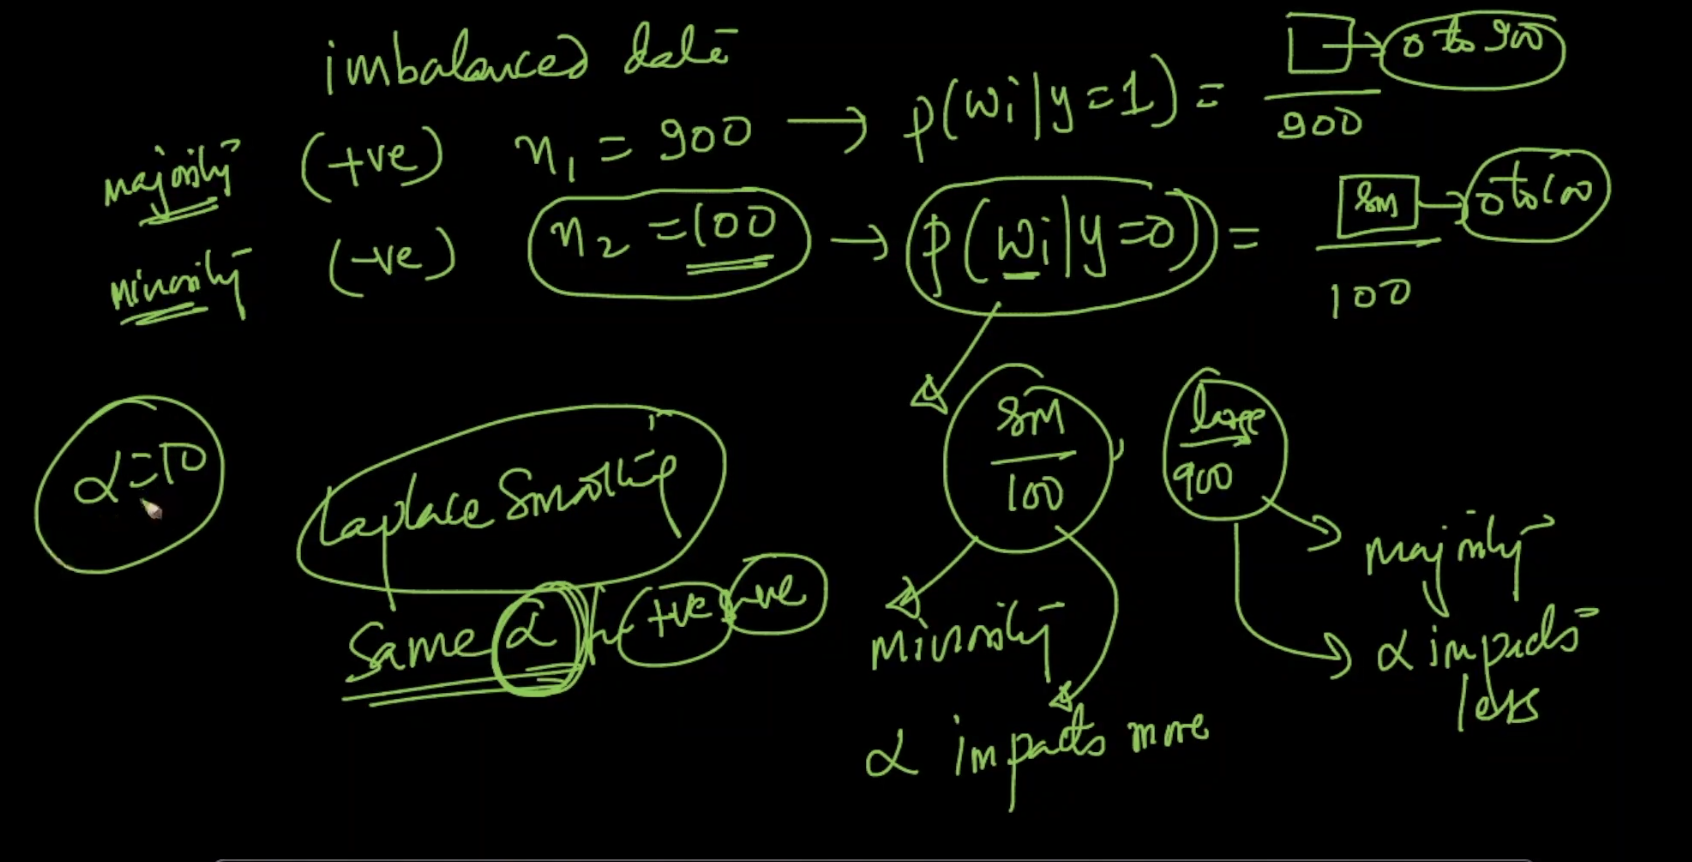 imbalanced data
majority (+ve) n₁ = 900 → p(wi|y=1) = □ → 0 to 900
900
minority (-ve) n₂ = 100 → p(wi|y=0) = sm → 0 to 100
100
α=10
Laplace Smoothing
Same α for +ve -ve
sm
100
,
large
900
minority
α impacts more
majority
α impacts
less